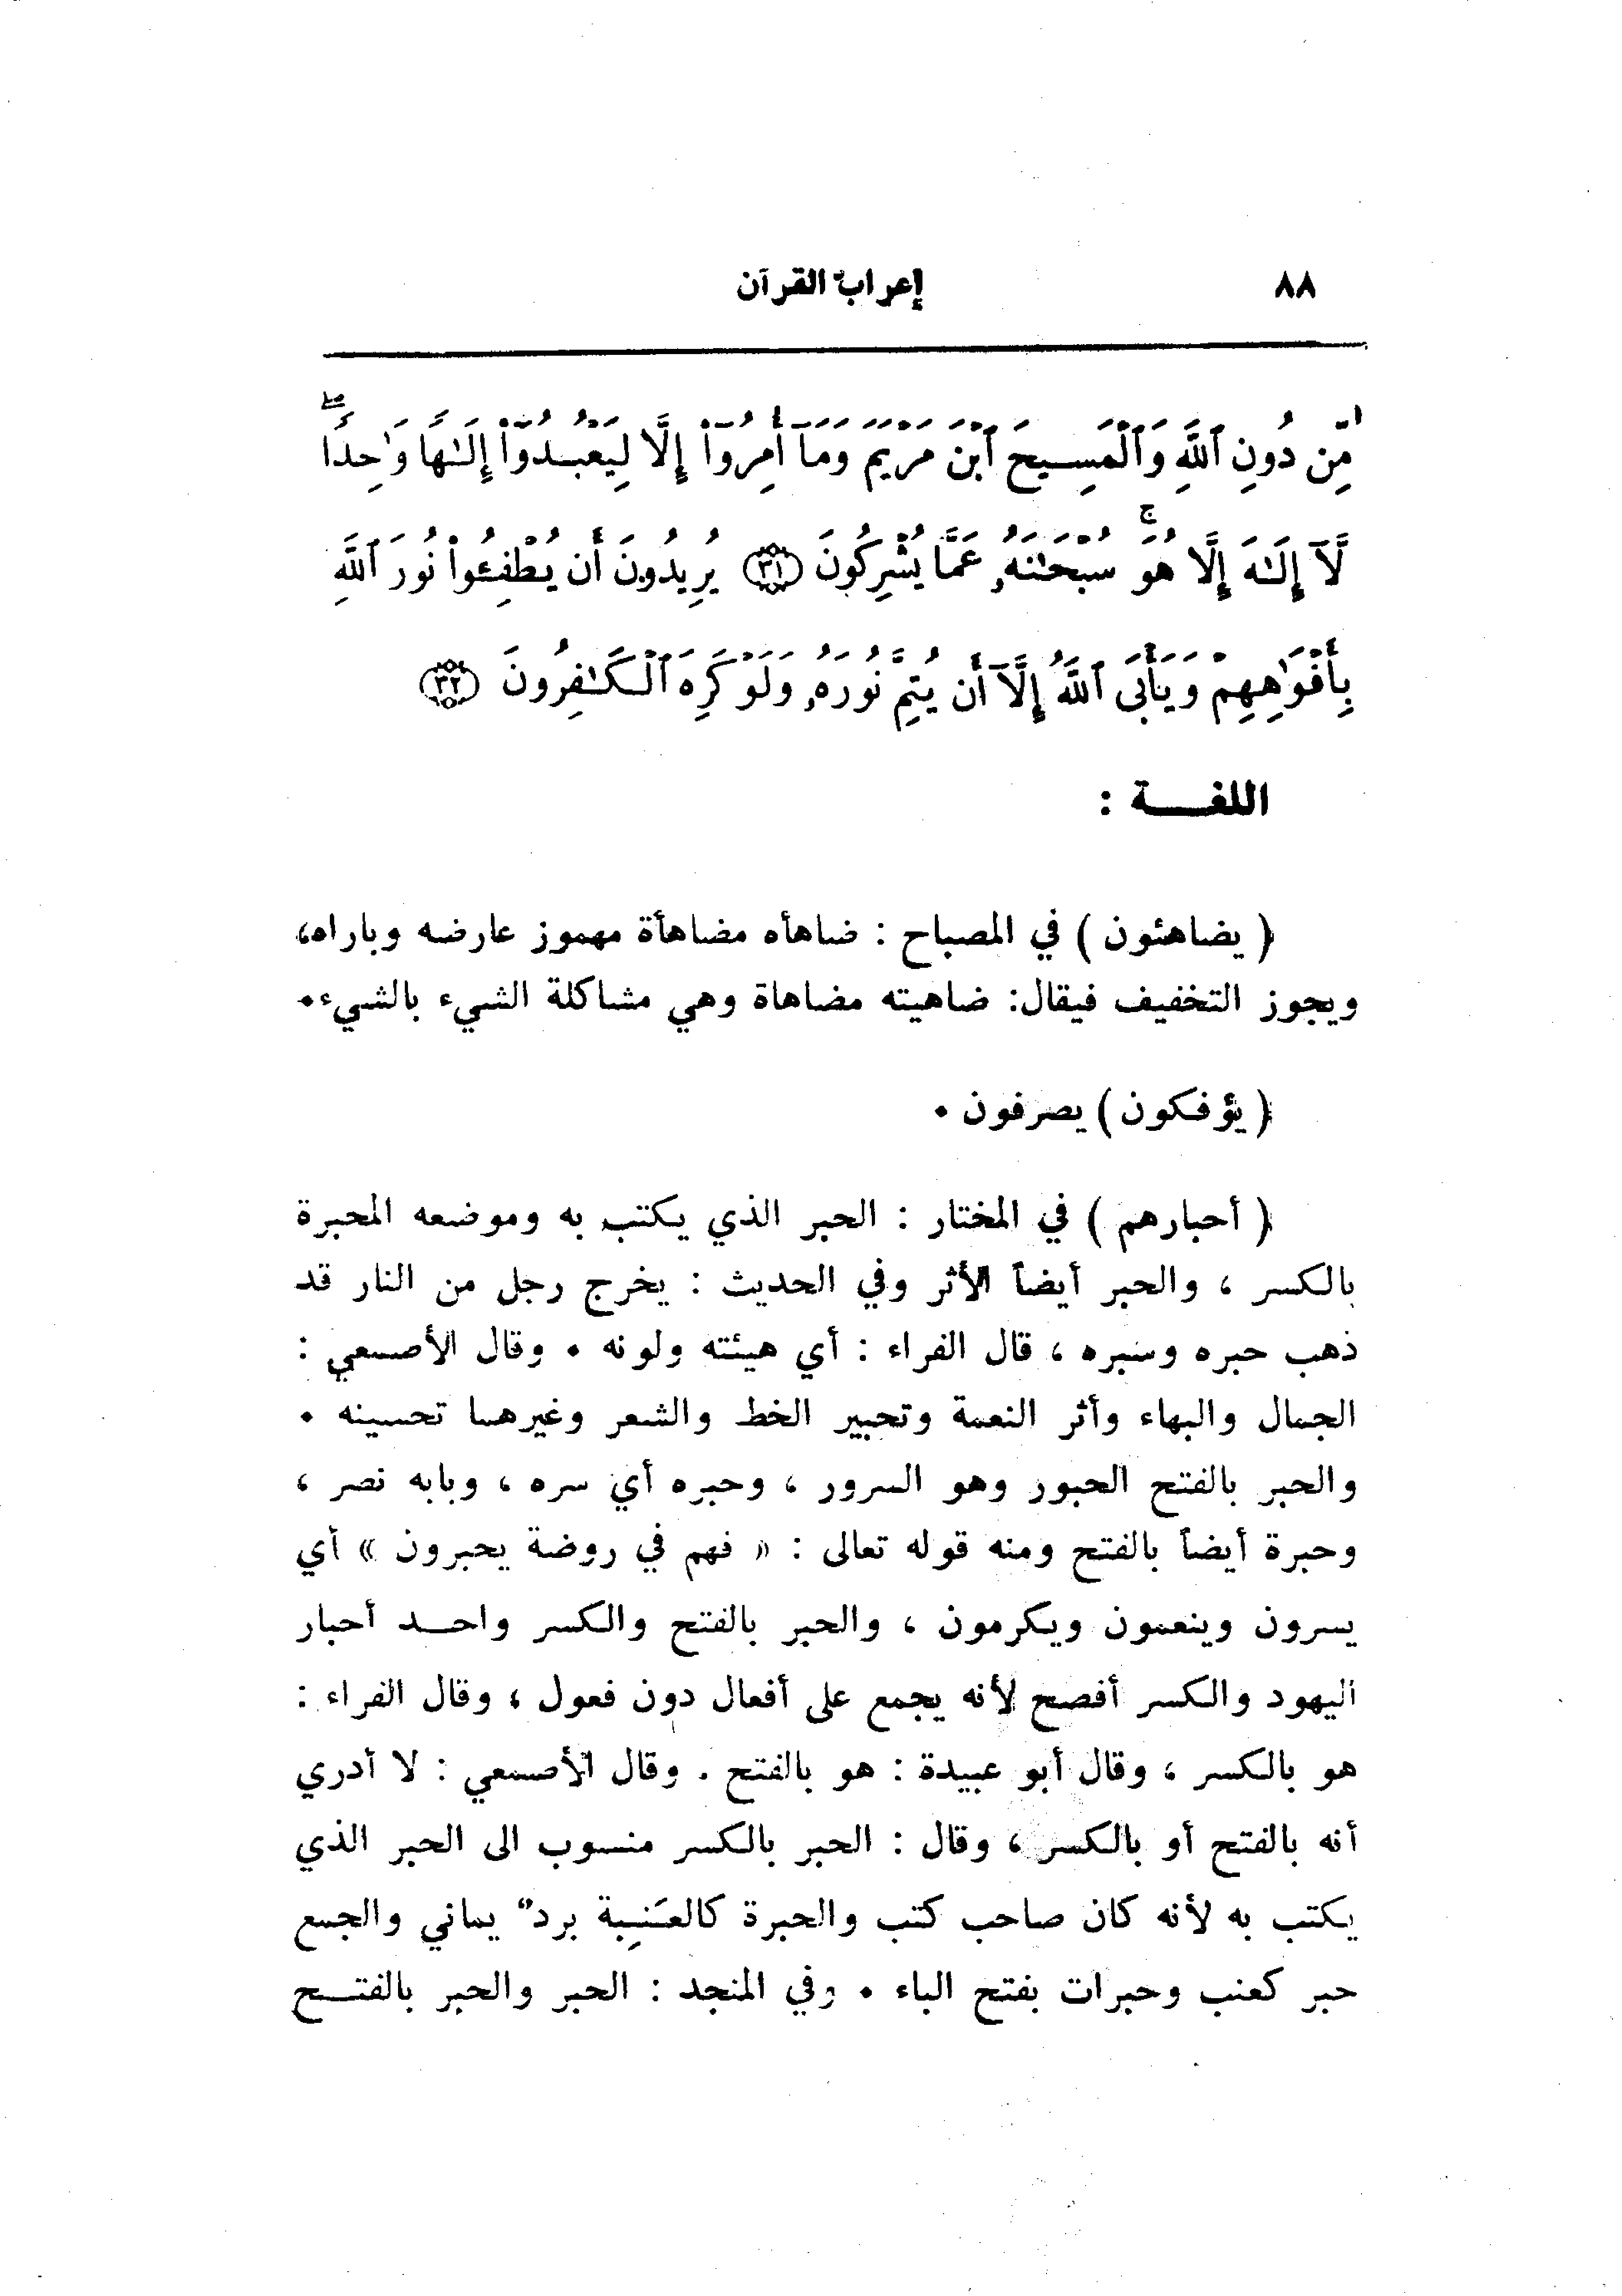 ٨٨ إعراب القرآن
مِّن دُونِ ٱللَّهِ وَٱلْمَسِيحَ ٱبْنَ مَرْيَمَ وَمَآ أُمِرُوٓا۟ إِلَّا لِيَعْبُدُوٓا۟ إِلَـٰهًا وَٰحِدًا ۖ
لَّآ إِلَـٰهَ إِلَّا هُوَ ۚ سُبْحَـٰنَهُۥ عَمَّا يُشْرِكُونَ ﴿٣١﴾ يُرِيدُونَ أَن يُطْفِـُٔوا۟ نُورَ ٱللَّهِ
بِأَفْوَٰهِهِمْ وَيَأْبَى ٱللَّهُ إِلَّآ أَن يُتِمَّ نُورَهُۥ وَلَوْ كَرِهَ ٱلْكَـٰفِرُونَ ﴿٣٢﴾
اللغـــة :
( يضاهئون ) في المصباح : ضاهأه مضاهأة مهموز عارضه وباراه،
ويجوز التخفيف فيقال: ضاهيته مضاهاة وهي مشاكلة الشيء بالشيء.
( يؤفكون ) يصرفون .
( أحبارهم ) في المختار : الحبر الذي يكتب به وموضعه المحبرة
بالكسر ، والحبر أيضاً الأثر وفي الحديث : يخرج رجل من النار قد
ذهب حبره وسبره ، قال الفراء : أي هيئته ولونه . وقال الأصمعي :
الجمال والبهاء وأثر النعمة وتحبير الخط والشعر وغيرهما تحسينه .
والحبر بالفتح الحبور وهو السرور ، وحبره أي سره ، وبابه نصر ،
وحبرة أيضاً بالفتح ومنه قوله تعالى : « فهم في روضة يحبرون » أي
يسرون وينعمون ويكرمون ، والحبر بالفتح والكسر واحـــد أحبار
اليهود والكسر أفصح لأنه يجمع على أفعال دون فعول ، وقال الفراء :
هو بالكسر ، وقال أبو عبيدة : هو بالفتح . وقال الأصمعي : لا أدري
أنه بالفتح أو بالكسر ، وقال : الحبر بالكسر منسوب الى الحبر الذي
يكتب به لأنه كان صاحب كتب والحبرة كالعَنِبة بردٌ يماني والجمع
حبر كعنب وحبرات بفتح الباء . وفي المنجد : الحبر والحبر بالفتـــح